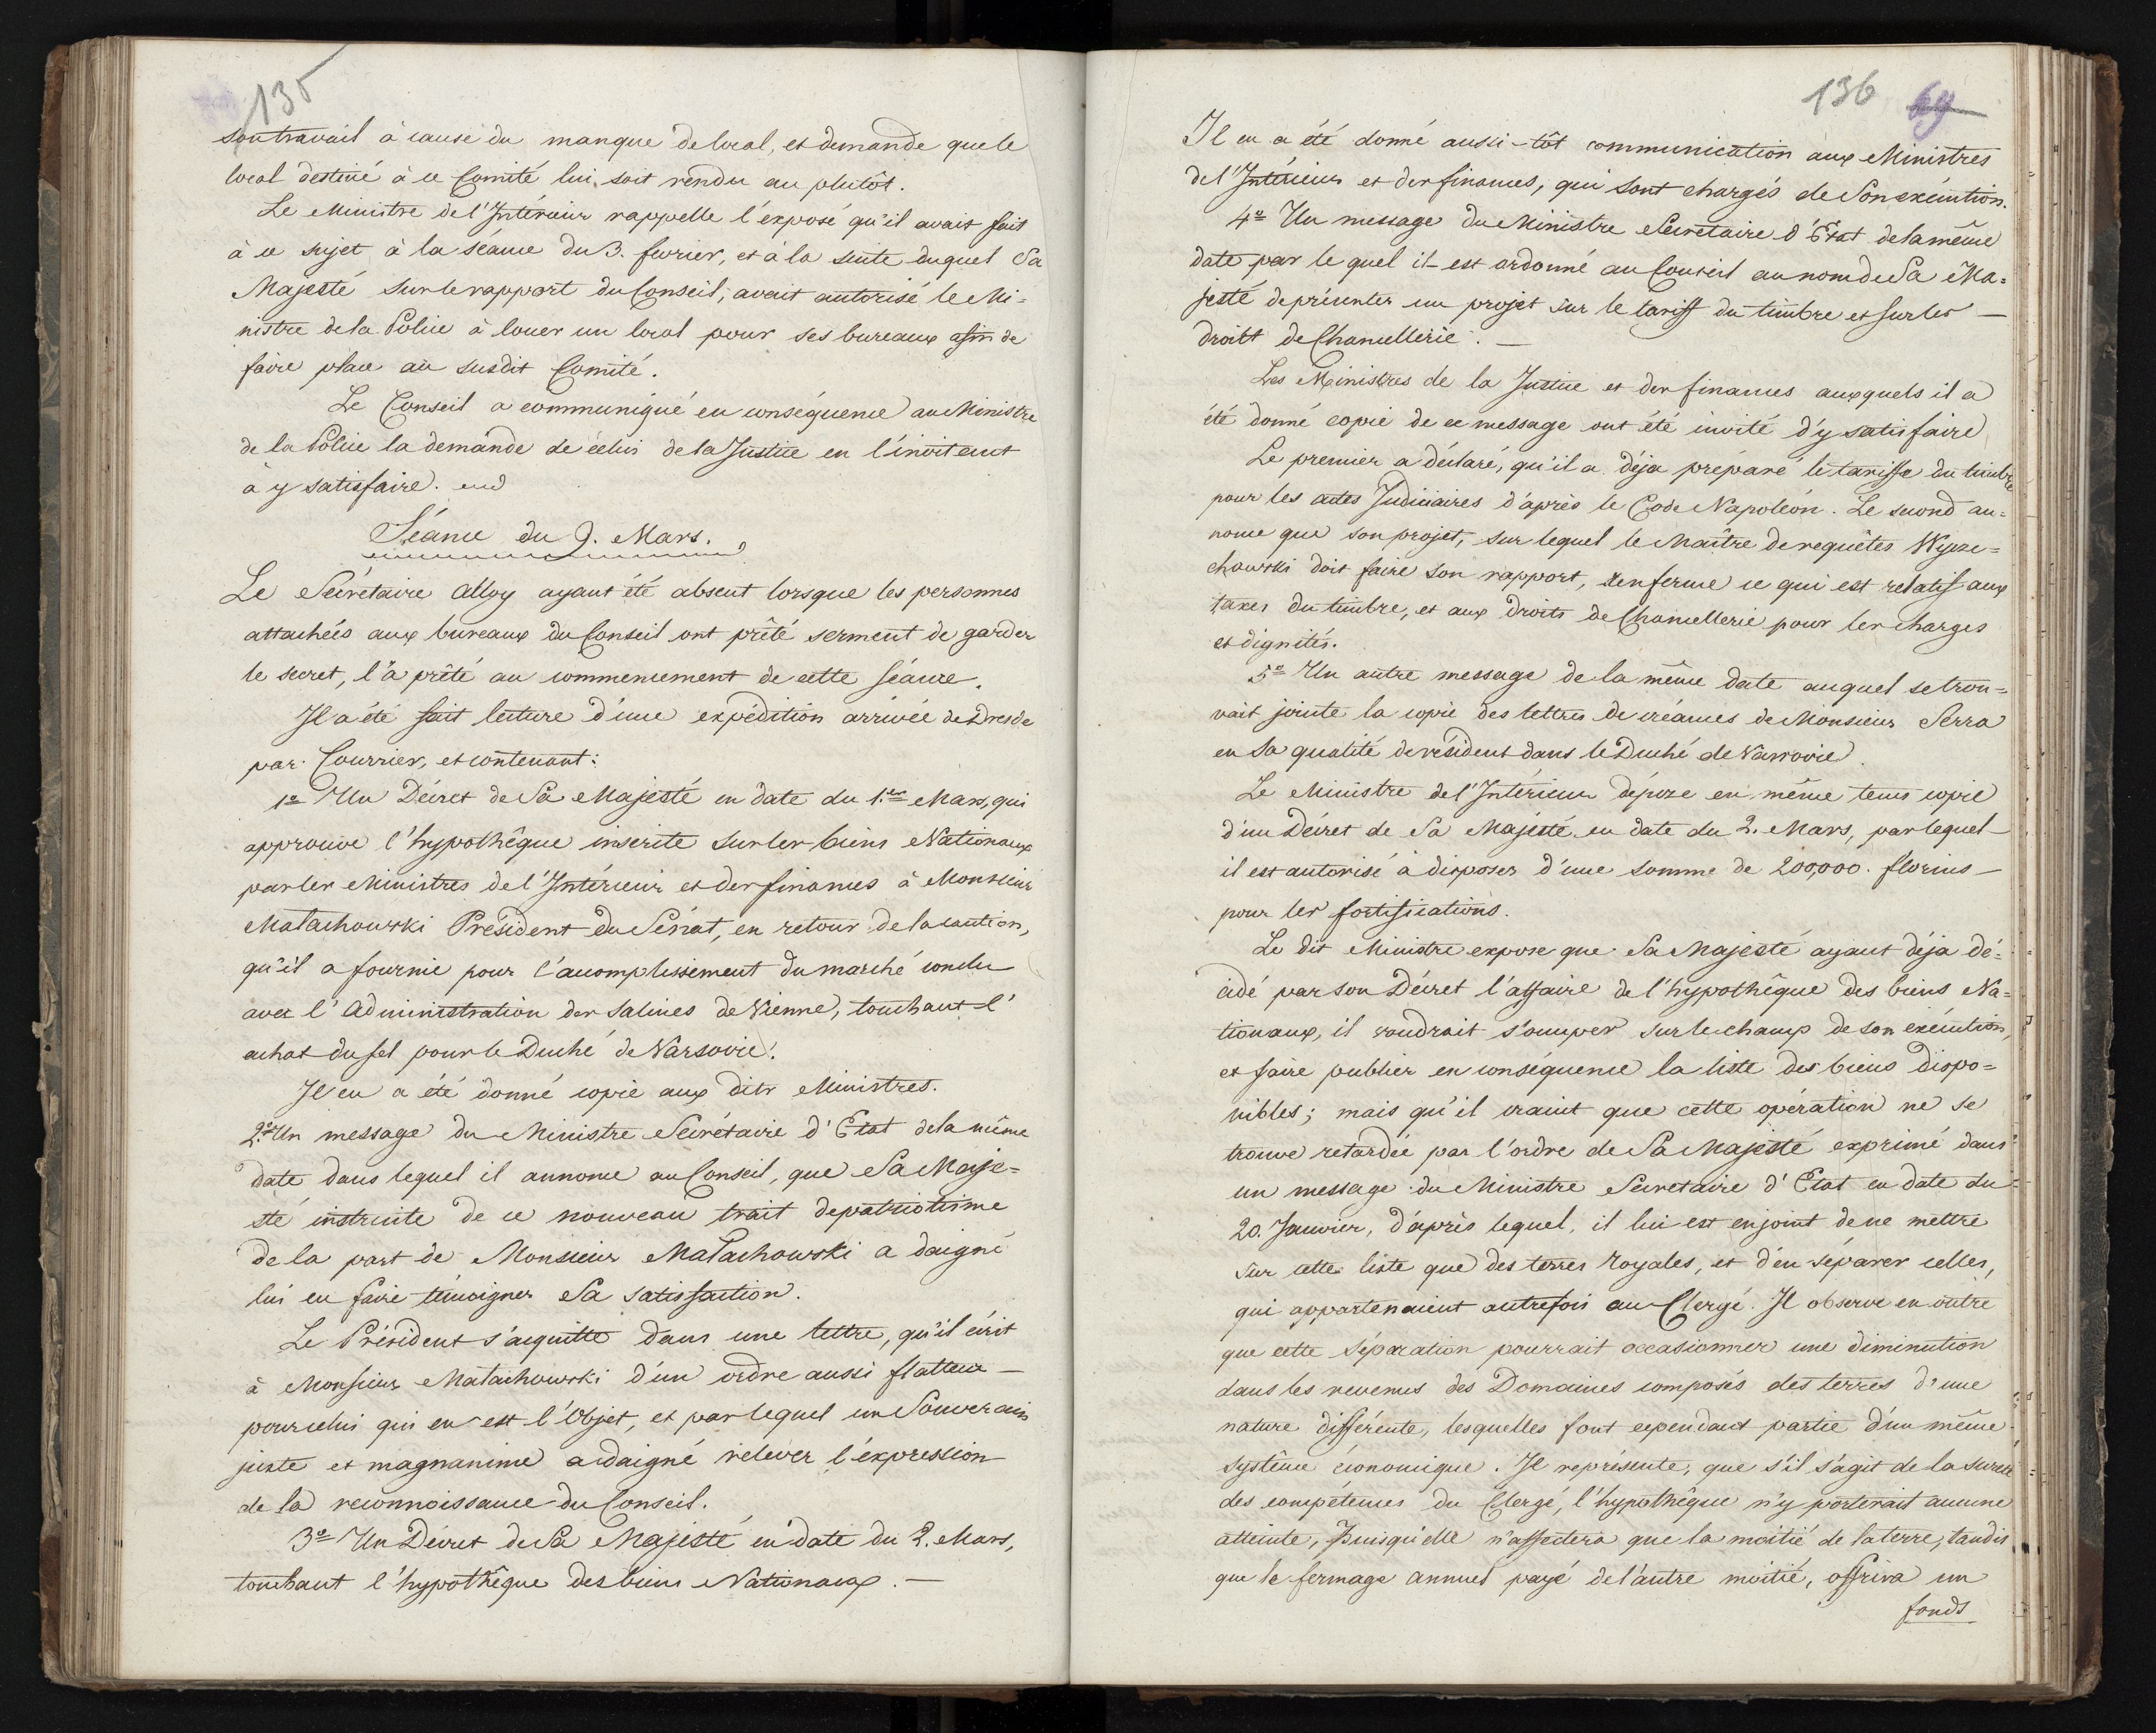 135
son travail à cause du manque de local, et demande que le
local destiné à ce Comité lui soit rendu au plutôt.
Le Ministre de l'Intérieur rappelle l'exposé qu'il avait fait
à ce sujet à la séance du 3. fevrier, et à la suite duquel Sa
Majesté sur le rappart du Conseil, avait autorisé le Mi=
nistre de la Police à louer un local pour ses bureaux afin de
faire place au susdit Comité.
Le Conseil a communiqué en conséquence au Ministre
de la Police la demande de celui de la Justice en l'invitant
à y satisfaire.
Séance du 9. Mars.
Le Secrétaire Alloy ayant été absent lorsque les personnes
attachées aux bureaux du Conseil ont prêté serment de garder
le secret, l'a prêté au commencement de cette séance.
Il a été fait lecture d'une expédition arrivée de Dresde
par Courrier, et contenant:
1º Un Décret de Sa Majesté en date du 1.er Mars, qui
approuve l'hypothêque inscrite sur les biens Nationaux
par les Ministres de l'Intérieur et des finances à Monsieur
Małachowski Président du Sénat, en retour de la caution,
qu'il a fournie pour l'accomplissement du marché conclu
avec l'Administration des Salines de Vienne, touchant l'
achat du sel pour le Duché de Varsovie.
Il en a été donné copie aux dits Ministres.
2º Un message du Ministre Secrétaire d'Etat de la même
date dans lequel il annonce au Conseil, que Sa Maje=
sté instruite de ce nouveau trait de patriotisme
de la part de Monsieur Małachowski a daigné
lui en faire témoigner Sa satisfaction.
Le Président s'acquitte dans une lettre, qu'il écrit
à Monsieur Małachowski d'un ordre aussi flatteur —
pour celui qui en est l'Objet, et par lequel un Souverain
juste et magnanime a daigné relever l'expression
de la reconnoissance du Conseil.
3º Un Décret de Sa Majesté en date du 2. Mars,
touchant l'hypothêque des biens Nationaux. —
136 69
Il en a été donné aussi-tôt communication aux Ministres
de l'Intérieur et des finances, qui sont chargés de Son exécution.
4º Un message du Ministre Secrétaire d'Etat de la même
date par le quel il est ordonné au Conseil au nom de Sa Ma=
jesté de présenter un projet sur le tariff du timbre et sur les —
droits de Chancellerie. —
Les Ministres de la Justice et des finances auxquels il a
été donné copie de ce message ont été invité d'y satisfaire
Le premier a déclaré, qu'il a déja préparé le tariffe du timbre
pour les actes Judiciaires d'après le Code Napoléon. Le second an=
nonce que son projet, sur lequel le Maître de requêtes Wycze=
chowski doit faire son rapport, renferme ce qui est relatif aux
taxes du timbre, et aux droits de Chancellerie pour les charges
et dignités.
5º Un autre message de la même date auquel se trou=
vait jointe la copie des lettres de créances de Monsieur Serra
en Sa qualité de résident dans le Duché de Varsovie.
Le Ministre de l'Intérieur dépoze en même tems copie
d'un Décret de Sa Majesté en date du 2. Mars, par lequel
il est autorisé à disposer d'une somme de 200,000. florins —
pour les fortifications.
Le dit Ministre expose que Sa Majesté ayant déja dé=
cidé par son Décret l'affaire de l'hypothêque des biens Na=
tionaux, il voudrait s'occuper sur le champ de son exécution,
et faire publier en conséquence la liste des biens dispo=
nibles; mais qu'il craint que cette opération ne se
trouve retardée par l'ordre de Sa Majesté exprimé dans
un message du Ministre Secretaire d'Etat en date du
20. Janvier, d'après lequel, il lui est enjoint de ne mettre
sur cette liste que des terres Royales, et d'en séparer celles,
qui appartenaient autrefois au Clergé. Il observe en outre
que cette séparation pourrait occasionner une diminution
dans les revenus des Domaines composés des terres d'une
nature différente, lesquelles font cependant partie d'un même
système économique. Il représente, que s'il s'agit de la sureté
des compétences du Clergé, l'hypothêque n'y porterait aucune
atteinte, Puisqu'elle n'affectera que la moitié de la terre, tandis
que le fermage annuel payé de l'autre moitié, offrira un
fonds